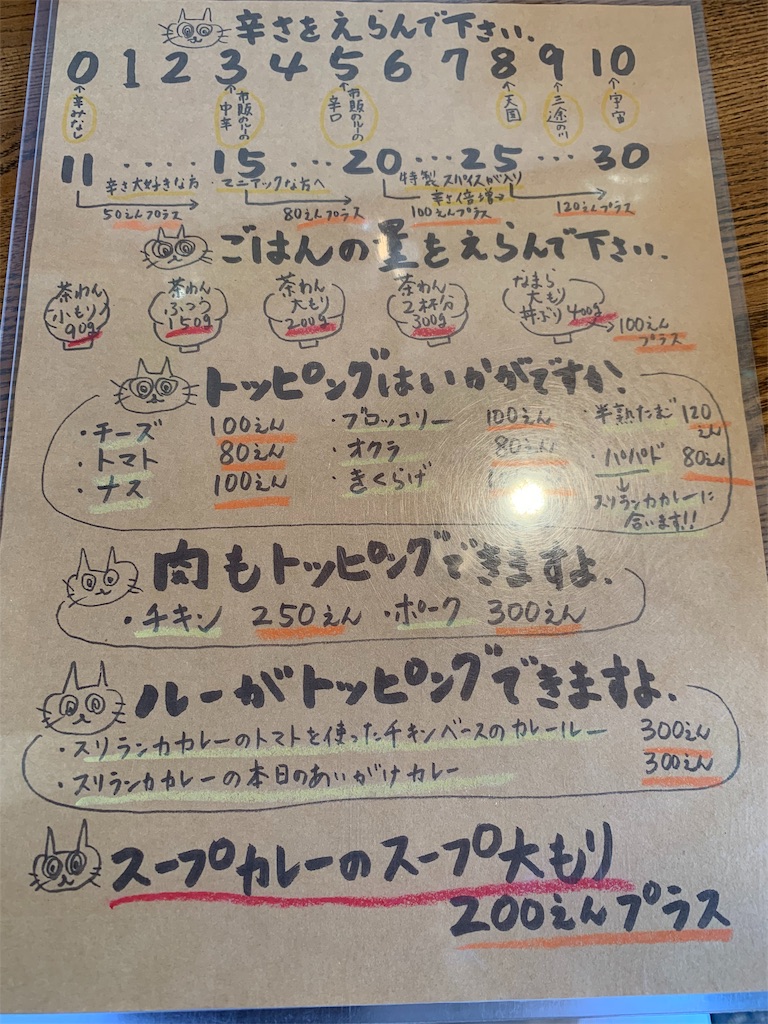 辛さをえらんで下さい.
0 1 2 3 4 5 6 7 8 9 10
↑辛みなし
↑市販のルーの中辛
↑市販のルーの辛口
↑天国
↑三途の川
↑宇宙
11 ・・・・ 15 ・・・ 20 ・・・ 25 ・・・ 30
辛さ大好きな方
マニアックな方へ
特製スパイスが入り
辛さ倍増→
50えんプラス
80えんプラス
100えんプラス
120えんプラス
ごはんの量をえらんで下さい.
茶わん
小もり
90g
茶わん
ふつう
150g
茶わん
大もり
200g
茶わん
2杯分
300g
なまら
大もり
丼ぶり400g
→100えん
プラス
トッピングはいかがですか?
・チーズ 100えん
・トマト 80えん
・ナス 100えん
・ブロッコリー 100えん
・オクラ 80えん
・きくらげ
・半熟たまご 120えん
・パパド 80えん
↓
スリランカカレーに
合います!!
肉もトッピングできますよ.
・チキン 250えん ・ポーク 300えん
ルーがトッピングできますよ.
・スリランカカレーのトマトを使ったチキンベースのカレールー 300えん
・スリランカカレーの本日のあいがけカレー 300えん
スープカレーのスープ大もり
200えんプラス